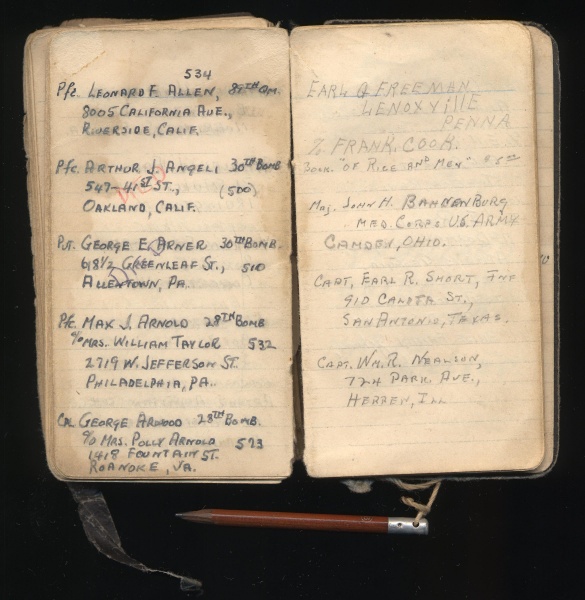 534
Pfc. LEONARD F. ALLEN,
8005 CALIFORNIA AVE.,
RIVERSIDE, CALIF.
Pfc. ARTHUR J. ANGELI 30TH BOMB
547-41ST ST., (500)
OAKLAND, CALIF.
Pvt. GEORGE E. ARNER 30TH BOMB.
618½ GREENLEAF ST., 510
ALLENTOWN, PA.
Pfc. MAX J. ARNOLD 28TH BOMB
℅ MRS. WILLIAM TAYLOR 532
2719 W. JEFFERSON ST.
PHILADELPHIA, PA.
CPL. GEORGE ARWOOD 28TH BOMB.
℅ MRS. POLLY ARNOLD 573
1418 FOUNTAIN ST.
ROANOKE, VA.
EARL Q FREEMAN
LENOXVILLE
PENNA
℅ FRANK COOK.
BOOK "OF RICE AND MEN"
MAJ. JOHN H. BAHNENBURG
MED. CORPS U.S. ARMY
CAMDEN, OHIO.
CAPT. EARL R. SHORT, INF
910 CALOTA ST.,
SAN ANTONIO, TEXAS.
CAPT. WM. R. NEALSON,
724 PARK AVE.,
HERREN, ILL